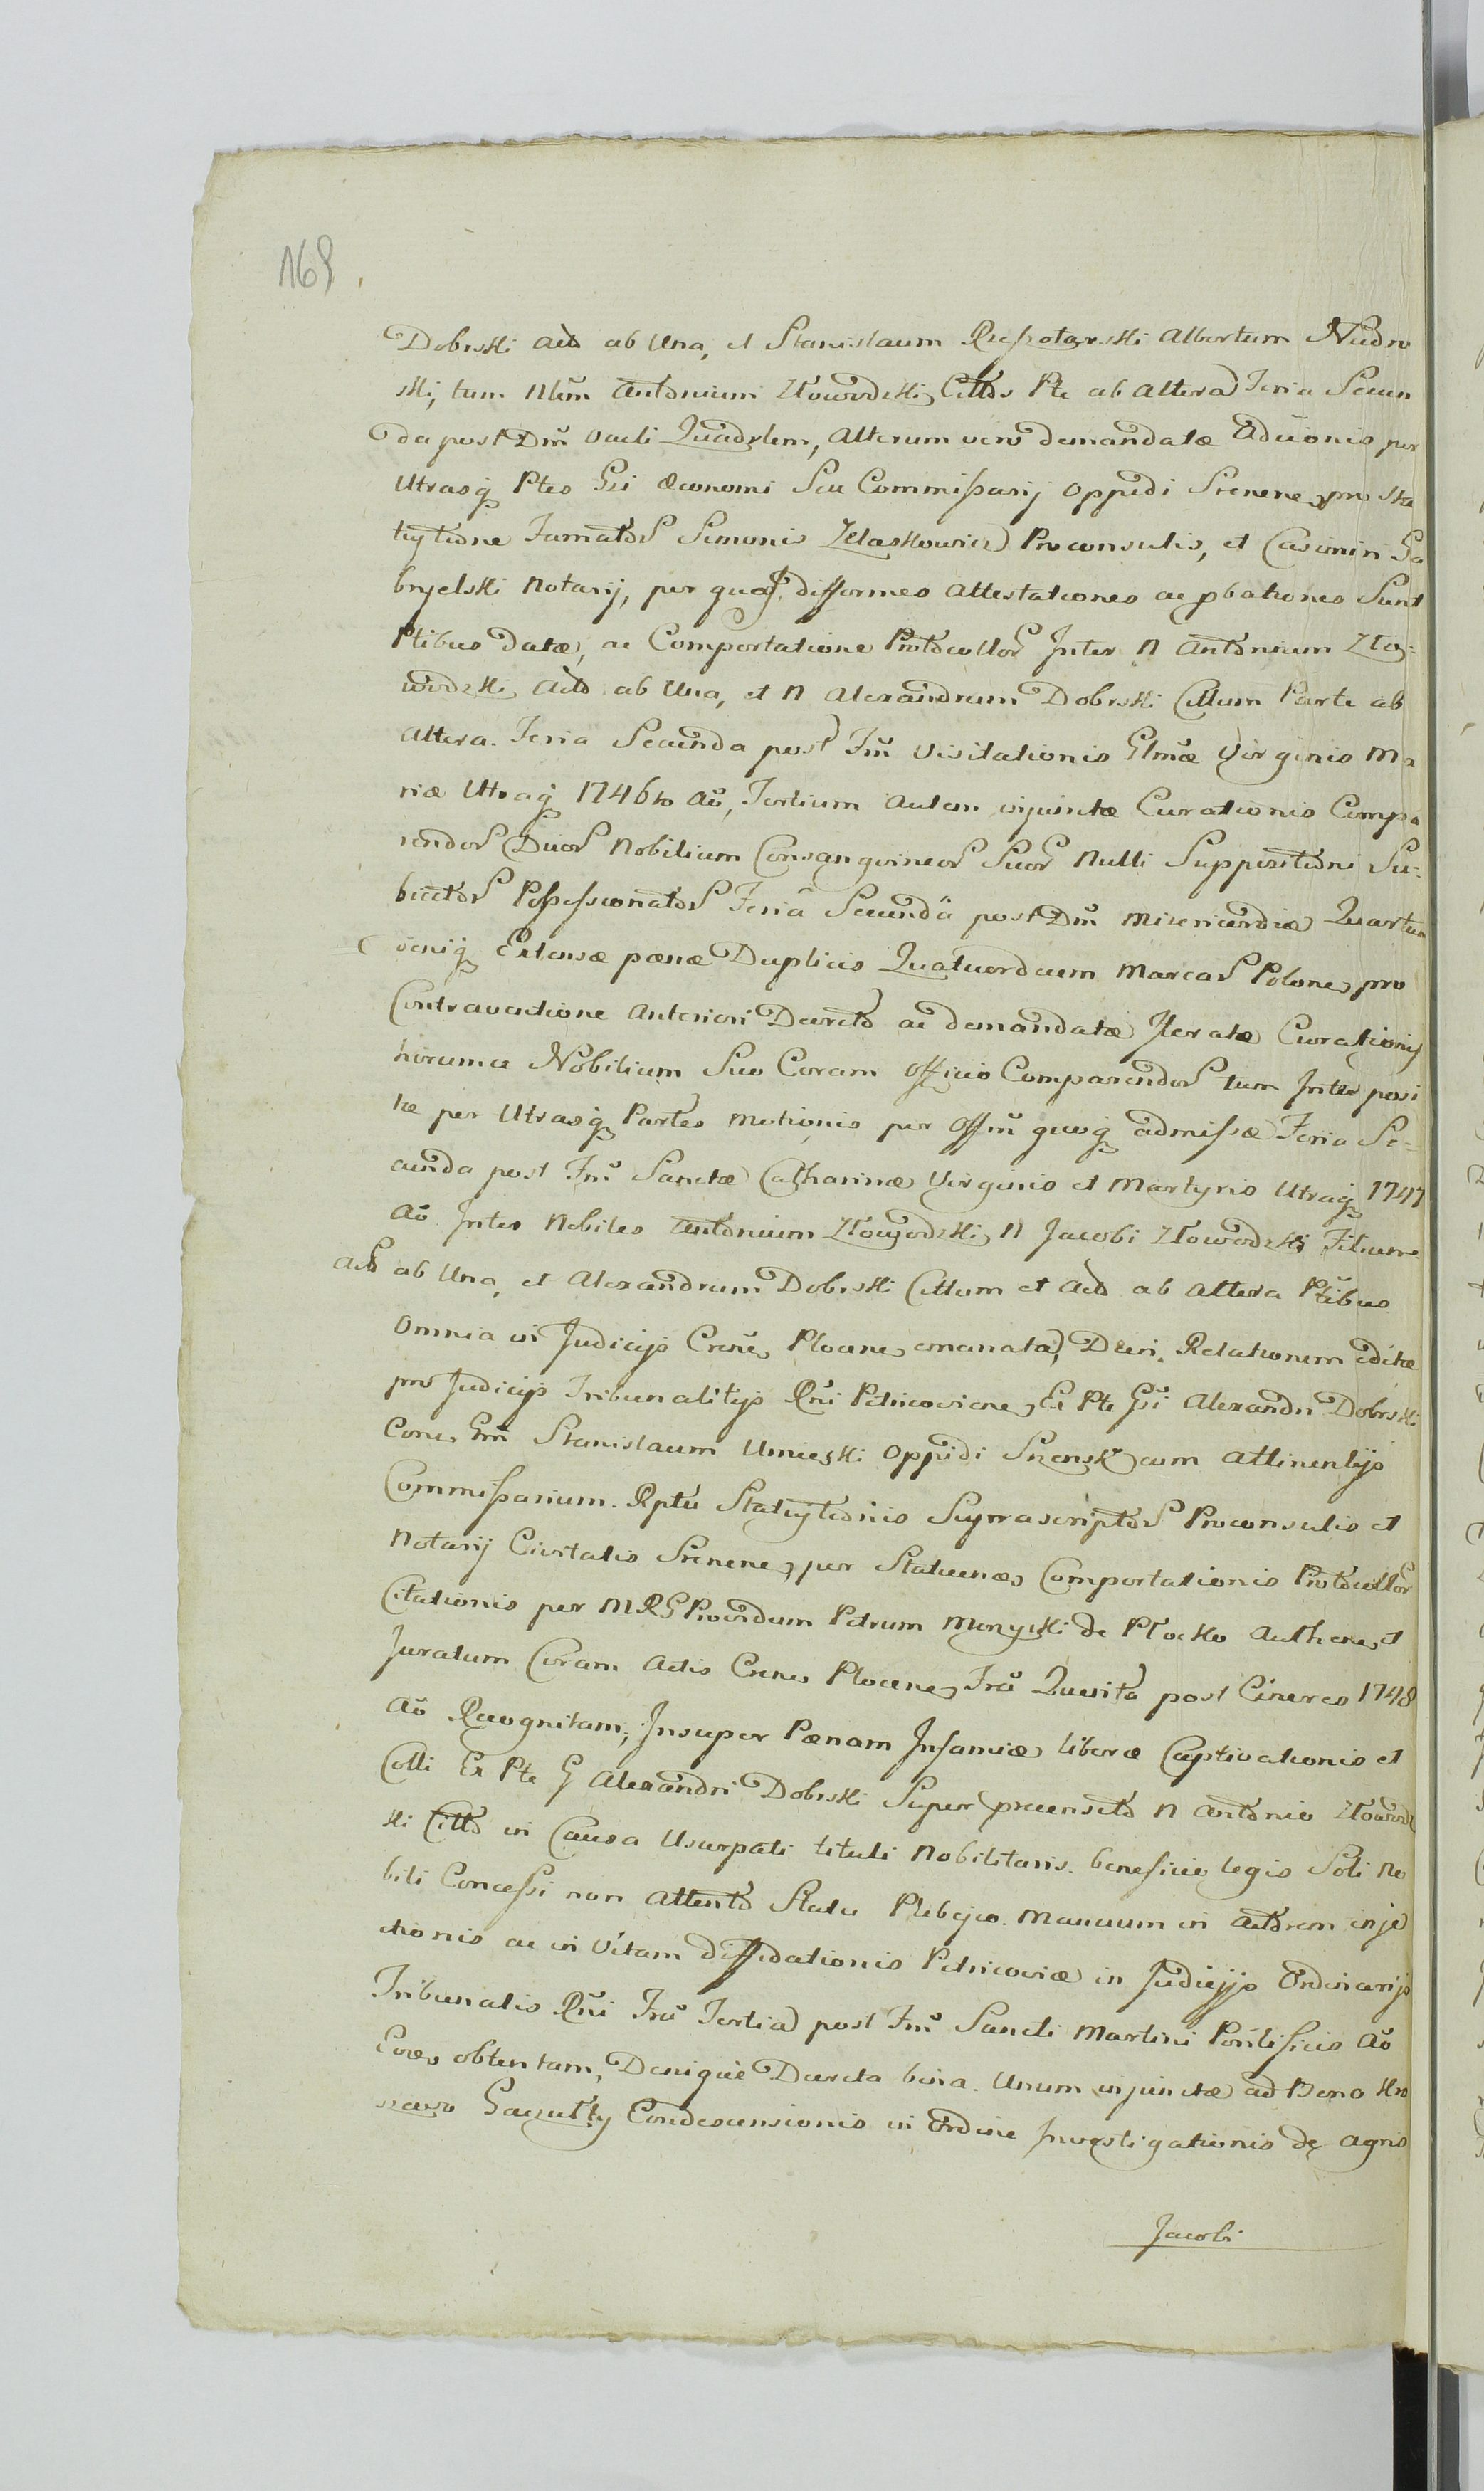 169
Dobrski Actō ab Una, et Stanislaum Rzeszotarski Albertum Nudro
ski, tum Nlēm Antonium Złowodzki, Cittōs Pte ab altera Feria Secun
da post Dm̄ Oculi Quadrlem, Alterum vero demandatæ Educ̄ionis per
Utrasq Ptes Gsi Œconomi Seu Commissarij Oppidi Srenen, pro Sta
tuytione Famator Simonis Zelaskowicz Proconsulis, et Casimiri Ga
bryelski Notarij, per quos difformes attestationes ac pbationes Sunt
Ptibus Datæ, ac Comportatione Protocollor Inter N Antonium Zło:
wodzki, Actō ab Una, et N Alexandrum Dobrski Cittum Parte ab
altera. Feria Secunda post Fm̄ Visitationis Glmæ Virginis Ma
riæ Utraq 1746to Aō, Tertium autem injunctæ Curationis Compa
rendor Duor Nobilium Consangvineor Suor Nulli Suppositioni Su:
biector Possessionator Feriâ Secundâ post Dm̄ Misericordiæ Quartum
deniq Extensæ pænæ Duplicis Quatuordecim Marcar Polonc, pro
Contraventione Anteriori Decreto ac demandatæ Iteratæ Curationis
horumce Nobilium Suo Coram Officio Comparendor tum Interposi
tæ per Utrasq Partes Motionis per Offm̄ quoq admissæ Feria Se:
cunda post Fm̄ Sanctæ Catharinæ Virginis et Martyris Utraq 1747
Aō Inter Nobiles Antonium Złowodzki, N Jacobi Złowodzki Filium
Actō ab Una, et Alexandrum Dobrski Cittum et Actō ab altera Ptibus
Omnia in Judicijs Crens Plocens emanata, Dein. Relationem editæ
pro Judicijs Tribunalitijs Rni Petricoviens, Ex Pte Gsi Alexandri Dobrski
Cone, Gm̄ Stanislaum Umieski Oppidi Srensk cum Attinentijs
Commissarium. Rptu Statuytionis Suprascriptor Proconsulis et
Notarij Civitatis Srenene, per Statuenæ Comportationis Protocollor
Citationis per MRG Providum Petrum Monyski de Płocko Authen, et
Juratum Coram Actis Crens Plocens, Fra Quarta post Cineres 1748
Aō Recognitam, Insuper Pœnam Infamiæ liberæ Captivationis et
Colli Ex Pte G Alexandri Dobrski Super præcensito N Antonio Złowodz
ki Citto in Causa Usurpati tituli Nobilitaris. beneficio legis Soli No
bili Concessi non Attento Statu Plebejo. Manuum in Actorem inje
ctionis ac in Vitam Diffidationis Petricoviæ in Judicijs Ordinarijs
Tribunalis Rni Fra Tertia post Fm̄ Sancti Martini Pontificis Aō
Eod, obtentam, Denique Decreta bina. Unum injunctæ ad Bona Kro
szewo Gaczułty Condescensionis in Ordine Investigationis de Agris
Jacobi